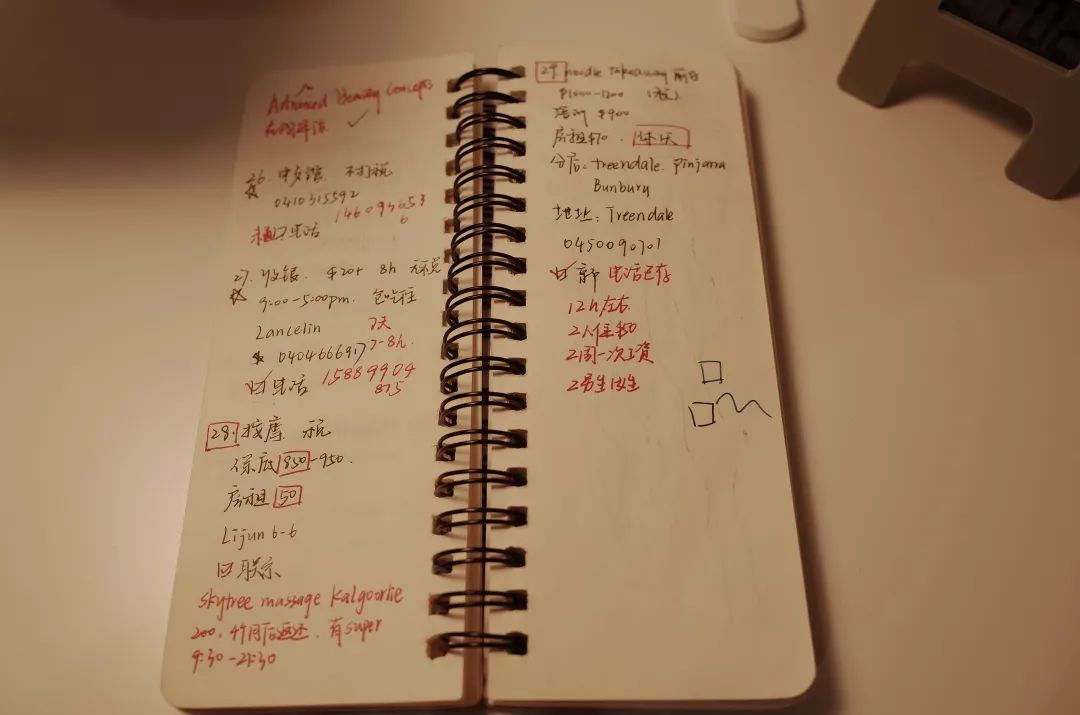 Advanced Beauty Concepts
26. 中文馆. 不打税
0410315592
146093653
6
电话
27. 收银. $20+ 8h 无税
9:00-5:00pm. 包吃住
Lancelin 7天
0404666917 7-8h.
电话 15889904
875
28. 按摩. 税
保底 850-950.
房租 50
Lijun 6-6
联系
Skytree massage Kalgoorlie
200. 4个月后返还. 有super
9:30-21:30
29. noodle takeaway 前台
$1000-1200 (税)
培训 $900
房租 $70.
分店: treendale. pinjarra
Bunbury
地址: Treendale
0450090701
电话已存
12h左右
2人住 $50
2周一次工资
2男生 女生